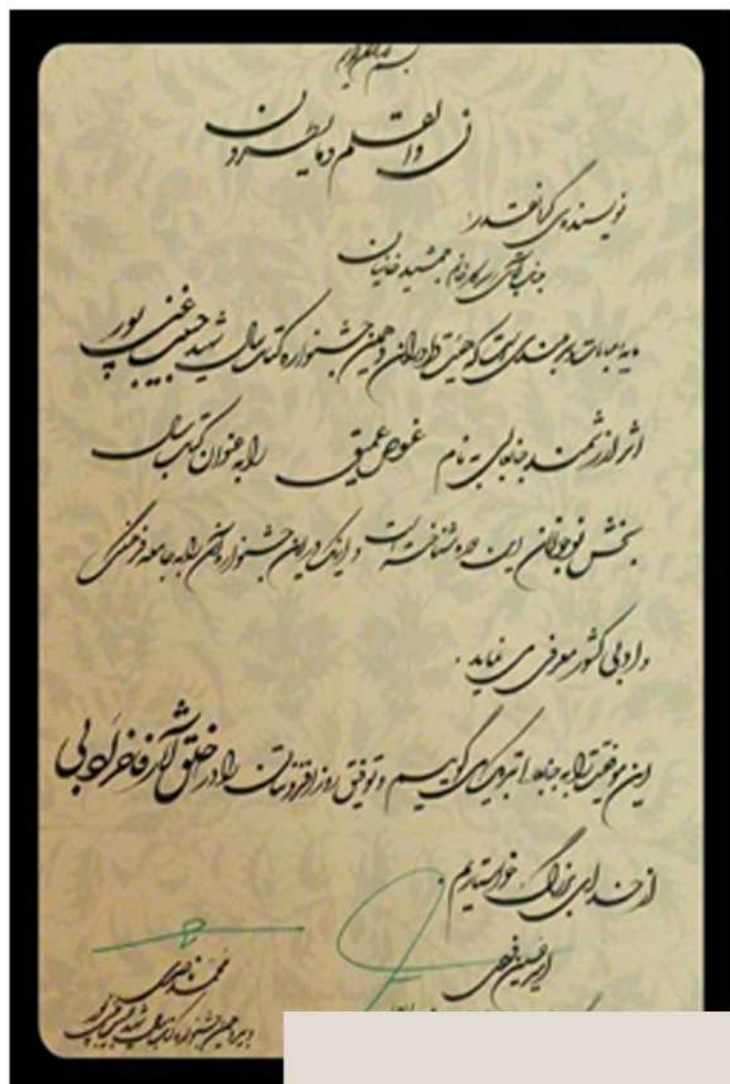 بسم الله الرحمن الرحیم
ن والقلم و ما یسطرون
نویسنده‌ی گرانقدر:
جناب آقای / سرکار خانم جمشید خانیان
مایه مباهات و خرسندی است که هیئت داوران دهمین جشنواره کتاب سال شهید حبیب غنی‌پور
اثر ارزشمند جنابعالی به نام غواص عمیق را به عنوان کتاب سال
بخش نوجوان این دوره شناخته است و اینک در این جشنواره آن را به جامعه فرهنگی
و ادبی کشور معرفی می نماید.
این موفقیت را به جنابعالی تبریک می گوییم و توفیق روز افزونتان را در خلق آثار فاخر ادبی
از خدای بزرگ خواستاریم.
امیرحسین فردی
محمد ناصری
دبیر دهمین جشنواره کتاب سال شهید حبیب غنی‌پور